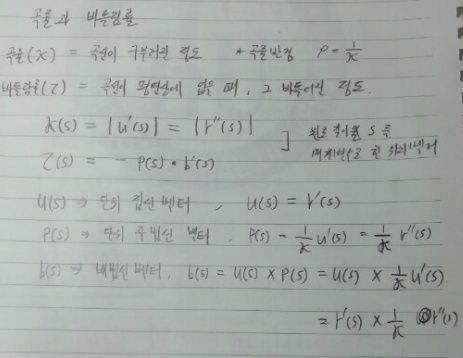 곡률과 비틀림률
곡률(κ) = 곡선이 구부러진 정도 * 곡률반경 ρ = 1/κ
비틀림률(τ) = 곡선이 평면상에 없을 때, 그 비틀어진 정도.
κ(s) = |u'(s)| = |r''(s)|
τ(s) = - p(s) • b'(s)
] 호의 길이를 s를 매개변수로 한
u(s) ⇒ 단위 접선 벡터, u(s) = r'(s)
p(s) ⇒ 단위 주법선 벡터, p(s) - 1/κ u'(s) = 1/κ r''(s)
b(s) ⇒ 배법선 벡터, b(s) = u(s) × p(s) = u(s) × 1/κ u'(s)
= r'(s) × 1/κ r''(s)